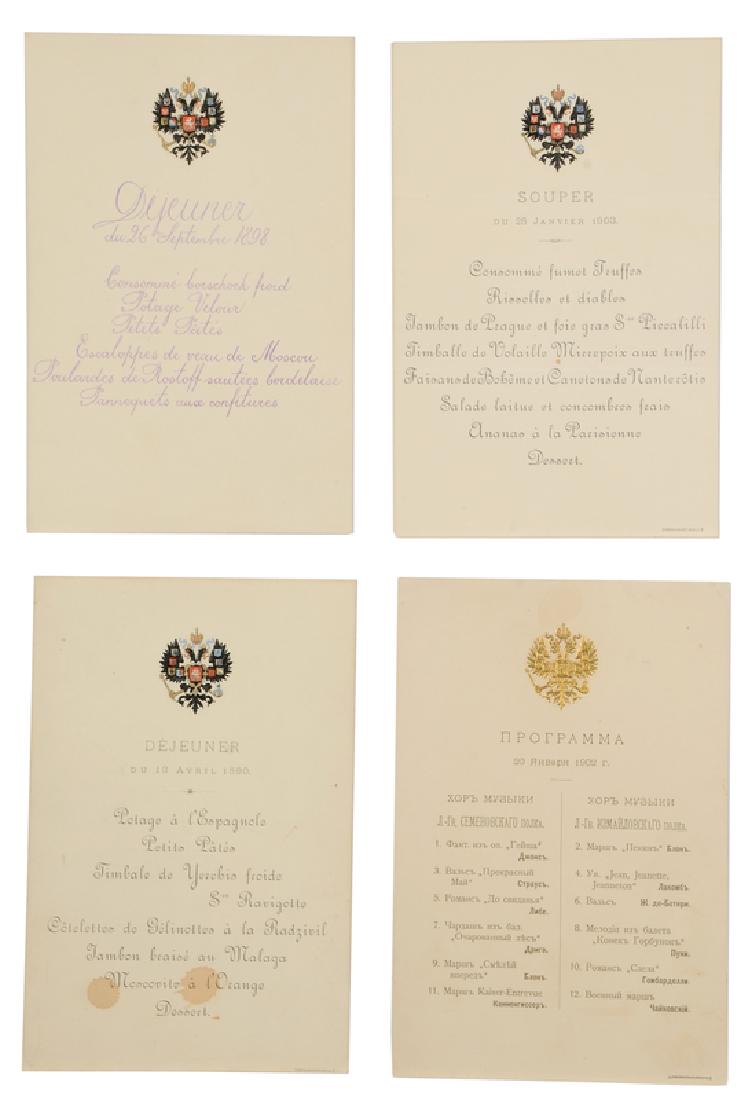 Déjeuner
du 26 Septembre 1898
Consommé borschock froid
Potage Velour
Petits Pâtés
Escaloppes de veau de Moscou
Poulardes de Rostoff sautées bordelaise
Pannequets aux confitures
SOUPER
DU 28 JANVIER 1903.
Consommé fumet Truffes
Rissolles et diables
Jambon de Prague et foie gras Sce Piccalilli
Timballe de Volaille Mirepoix aux truffes
Faisans de Bohême et Canetons de Nante rôtis
Salade laitue et concombres frais
Ananas à la Parisienne
Dessert.
DÉJEUNER
DU 12 AVRIL 1890.
Potage à l'Espagnole
Petits Pâtés
Timbale de froide
Sce Ravigotte
Côtelettes de Gélinottes à la Radzivil
Jambon braisé au Malaga
Moscovite à l'Orange
Dessert.
ПРОГРАММА
20 Января 1902 г.
ХОРЪ МУЗЫКИ
Л-ГВ. СЕМЕНОВСКАГО ПОЛКА.
1. Фант. изъ оп. „Гейша“
Джонсъ.
3. Вальсъ „Прекрасный
Май“ Страусъ.
5. Романсъ „До свиданья“
Либе.
7. Чардашъ изъ бал.
„Очарованный лѣсъ“
Дриго.
9. Маршъ „Смѣлѣй
впередъ“ Блонъ.
11. Маршъ Kaiser-Entrevue
ХОРЪ МУЗЫКИ
Л-ГВ. ИЗМАЙЛОВСКАГО ПОЛКА.
2. Маршъ Блонъ.
4. Ув. „Jean, Jeanette,
Jeanneton“ Лакомъ.
6. Вальсъ
8. Мелодія изъ балета
„Конекъ Горбунокъ“
Пуни.
10. Романсъ „Слеза“
Гомбарделли.
12. Военный маршъ
Чайковскій.